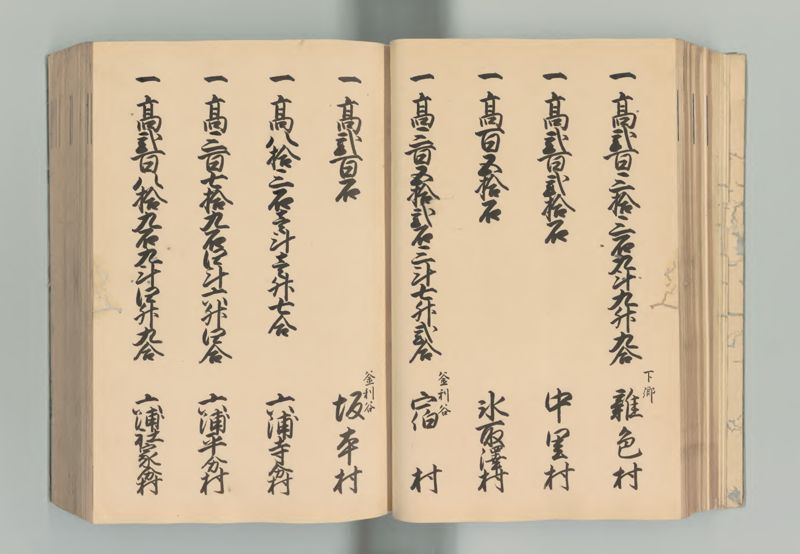 一 高弐百三拾三石九斗九升九合 下郷 雑色村
一 高弐百弐拾石 中里村
一 高百五拾石 氷取澤村
一 高三百五拾弐石三斗七升弐合 釜利谷 宿村
一 高弐百石 釜利谷 坂本村
一 高八拾三石壱斗壱升七合 六浦寺分村
一 高三百七拾九石四斗六升四合 六浦平分村
一 高弐百八拾九石九斗四升九合 六浦社家分村